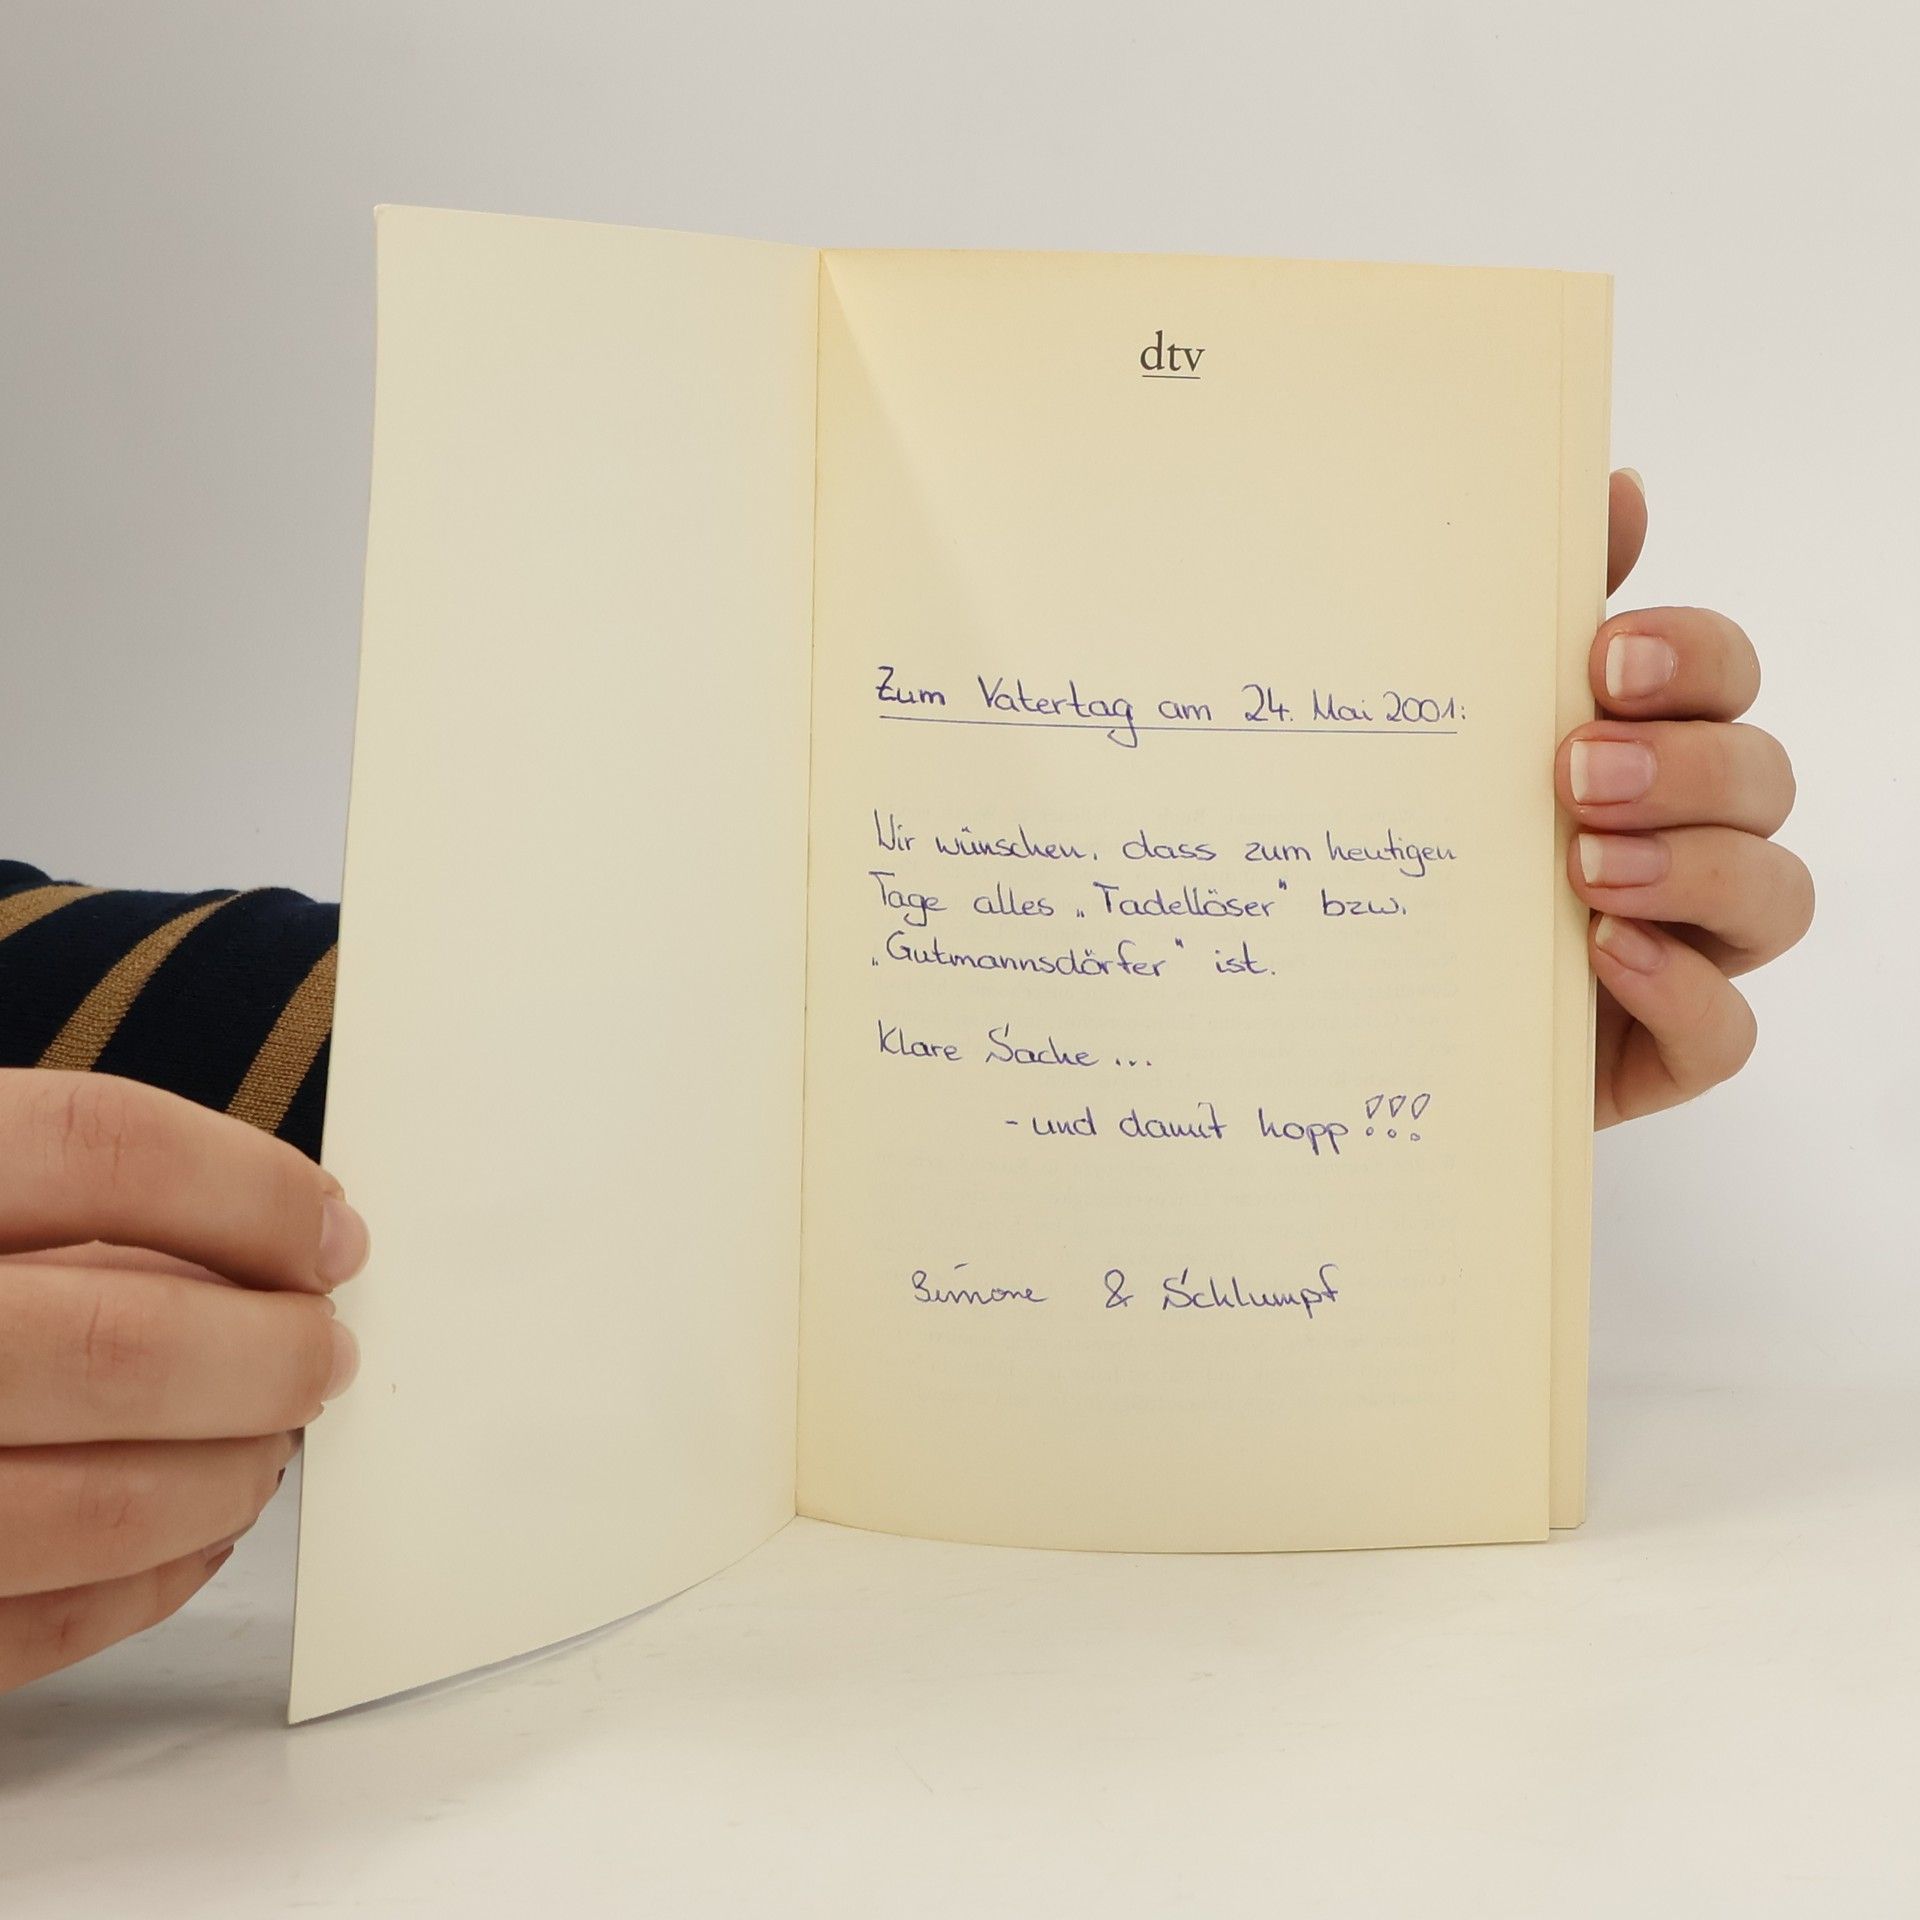 dtv
Zum Vatertag am 24. Mai 2001:
Wir wünschen, dass zum heutigen
Tage alles „Tadellöser" bzw.
„Gutmannsdörfer" ist.
Klare Sache ...
- und damit hopp!!!
Simone & Schlumpf